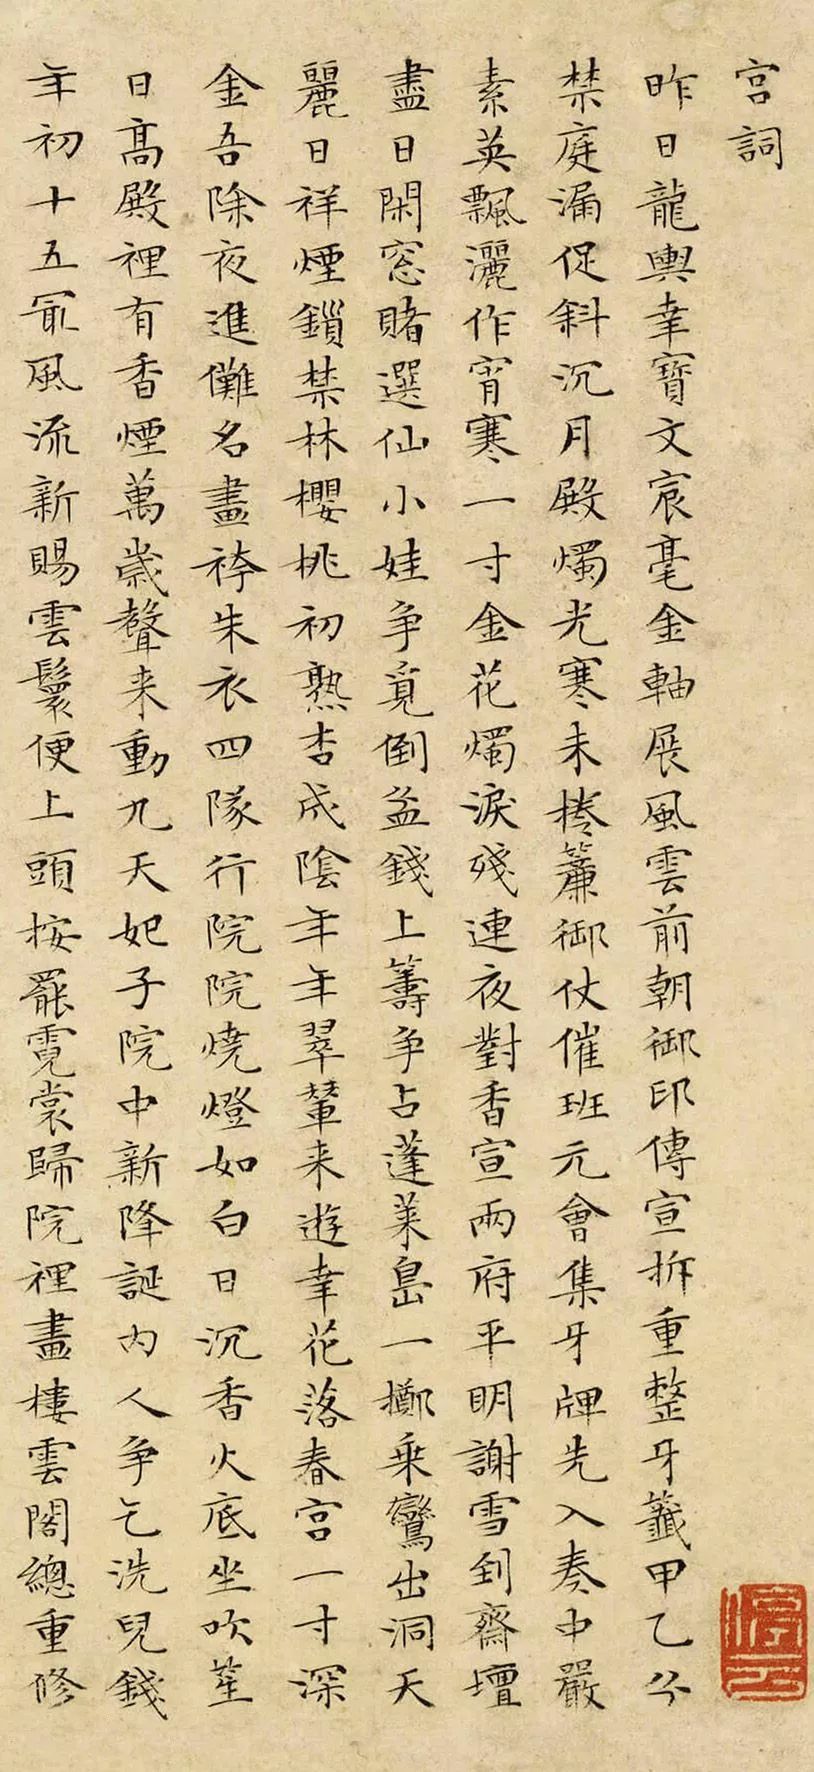 宮詞
昨日龍輿幸寶文宸毫金軸展風雲前朝御印傳宣拆重整牙籤甲乙分
禁庭漏促斜沉月殿燭光寒未捲簾御仗催班元會集牙牌先入奏中嚴
素英飄灑作宵寒一寸金花燭淚殘連夜對香宣兩府平明謝雪到齋壇
盡日閑窓賭選仙小娃争覓倒盆錢上籌争占蓬萊島一擲乘鸞出洞天
麗日祥煙鎖禁林櫻桃初熟杏成陰年年翠輦来遊幸花落春宮一寸深
金吾除夜進儺名畫袴朱衣四隊行院院燒燈如白日沉香火底坐吹笙
日高殿裡有香煙萬歲聲来動九天妃子院中新降誕內人争乞洗兒錢
年初十五冣風流新賜雲鬟便上頭按罷霓裳歸院裡畫樓雲閣總重修